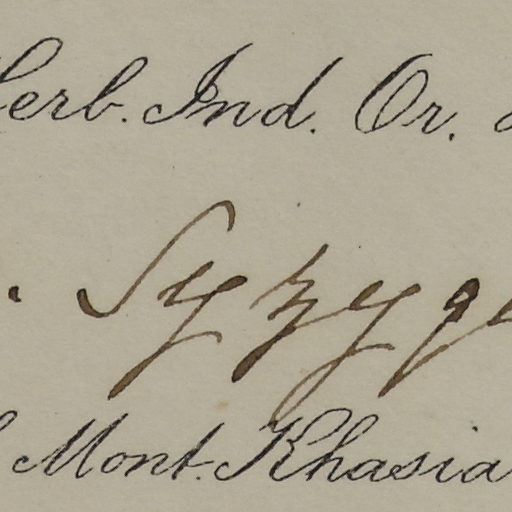 Herb. Ind. Or.
Syzyg
Mont. Khasia